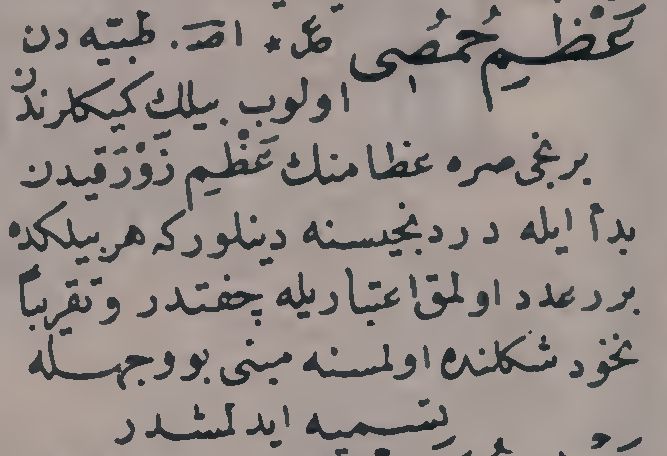 عَظْمِ حُمُّصِى عل * اصـ. طبیه دن
اولوب بیلك كمیكلرندن
برنجی صره عظامنك عَظْمِ زَوْرَقِیدن
بدأ ایله دردنجیسنه دینلور كه هر بیلكده
برر عدد اولمق اعتباریله چفتدر و تقریباً
نخود شكلنده اولمسنه مبنی بو وجهله
تسمیه ایدلمشدر